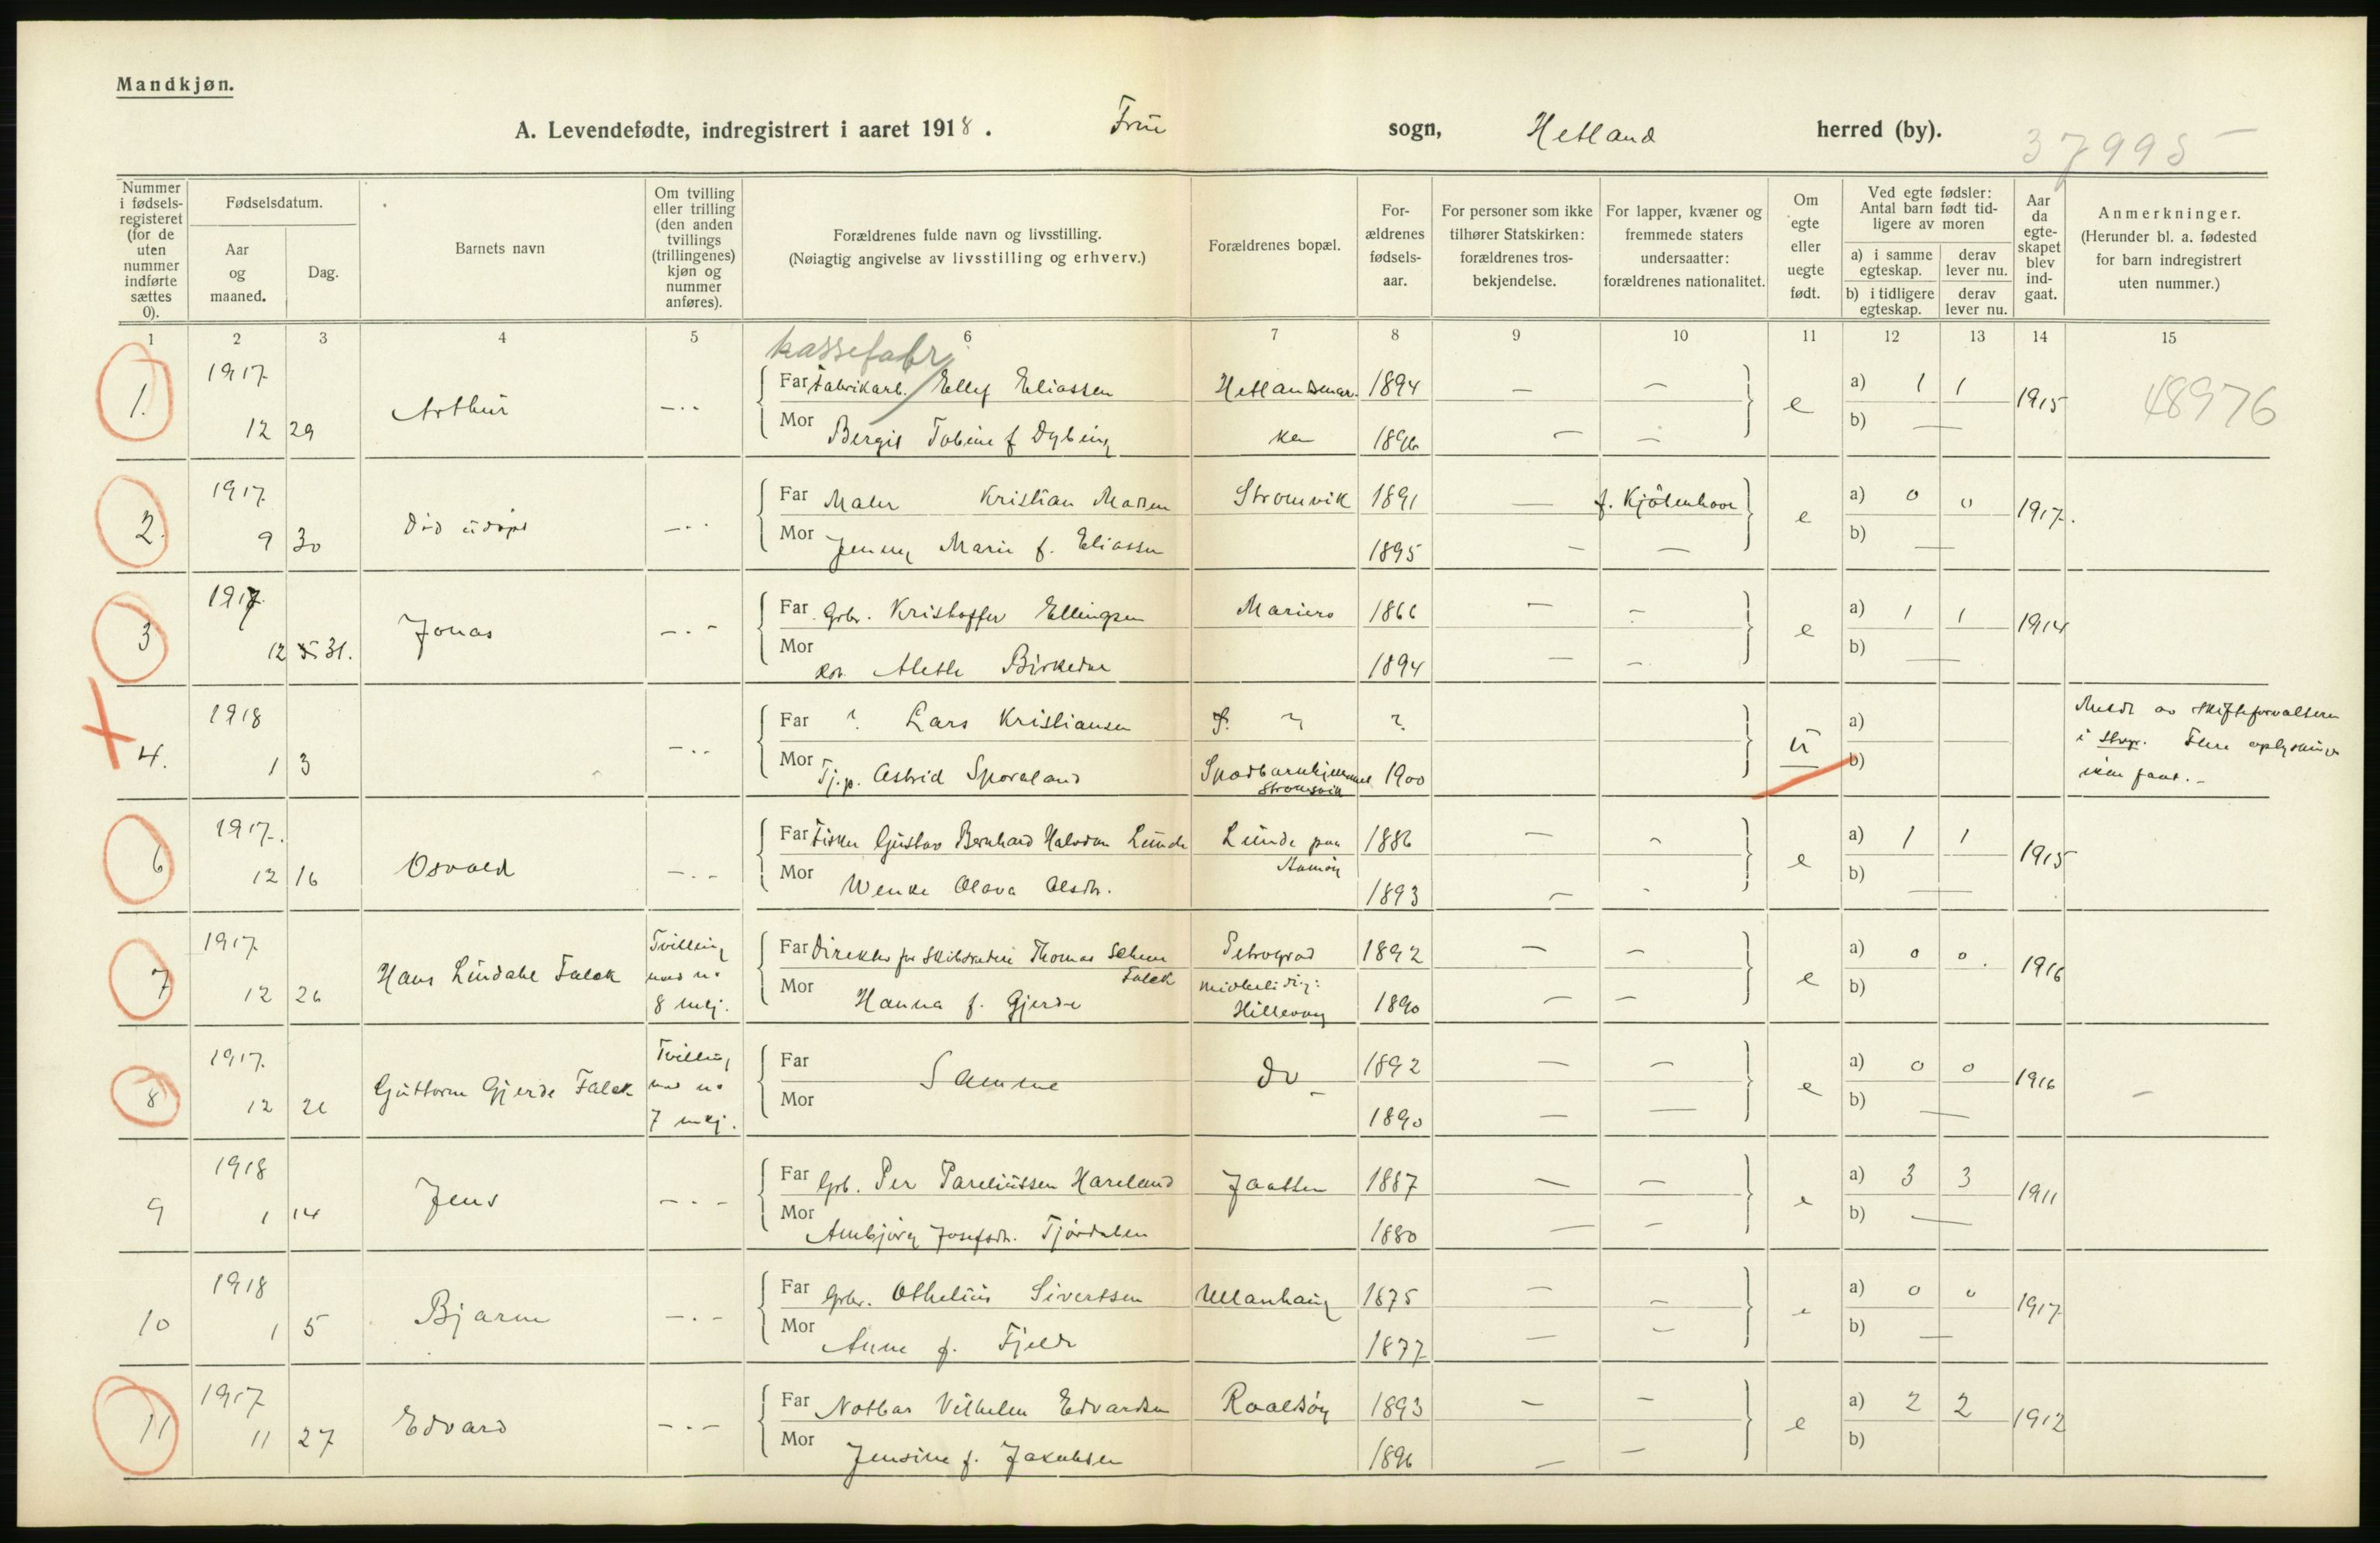 Mandkjøn.
A. Levendefødte, indregistrert i aaret 1918. Frue sogn, Hetland herred (by).
37995
Nummer i fødsels-registeret (for de uten nummer indførte sættes 0).
Fødselsdatum.
Aar og maaned.
Dag.
Barnets navn
Om tvilling eller trilling (den anden tvillings (trillingenes) kjøn og nummer anføres).
Forældrenes fulde navn og livsstilling.
(Nøiagtig angivelse av livsstilling og erhverv.)
Forældrenes bopæl.
For-ældrenes fødsels-aar.
For personer som ikke tilhører Statskirken: forældrenes tros-bekjendelse.
For lapper, kvæner og fremmede staters undersaatter: forældrenes nationalitet.
Om egte eller uegte født.
Ved egte fødsler: Antal barn født tid-ligere av moren
a) i samme egteskap. derav lever nu.
b) i tidligere egteskap. derav lever nu.
Aar da egte-skapet blev ind-gaat.
Anmerkninger.
(Herunder bl. a. fødested for barn indregistrert uten nummer.)
1 2 3 4 5 6 7 8 9 10 11 12 13 14 15
kassefabr.
1. 1917 12 29 Arthur —·· Far Fabrikarb. Ellef Eliassen Hetlandsmar- 1894 — — e a) 1 1 1915 48976
Mor Bergit Tobine f Dybing ken 1896 — — b) —
2. 1917 9 30 Død udøpt —·· Far Maler Kristian Madsen Stromvik 1891 — f. Kjöbenhavn e a) 0 0 1917.
Mor Jenny Marie f. Eliassen 1895 — — b) —
3 1917 12 31. Jonas —·– Far Grbr. Kristoffer Ellingsen Mariero 1866 — — e a) 1 1 1914
Mor Alethe Birkedne 1894 — — b) —
4. 1918 1 3 —·· Far ? Lars Kristiansen ? ? u a)
Mor Tj.p. Astrid Sporaland Spædbarnhjemmet Stromsvik 1900 b)
Meldt av Skifteforvalteren
i Stvgr. Flere oplysninger
ikke faat.–
6 1917. 12 16 Osvald —·– Far Fisker Gustav Bernhard Halvdan Lunde Lunde paa Aamöy 1886 — — e a) 1 1 1915
Mor Wenke Olava Olsdtr. 1893 — - b) —
7 1917 12 26 Hans Lindahl Falck Tvilling med no 8 mkj. Far Direktør for Skibsrederi Thomas Schem Falck Petrograd 1892 — — e a) 0 0. 1916
Mor Hanna f. Gjerde midlertidig: Hillevaag 1890 — — b)
8 1917. 12 26 Guttorm Gjerde Falck Tvilling med no 7 mkj. Far Samme do 1892 — — e a) 0 0 1916 –
Mor – 1890 — — b) —
9 1918 1 14 Jens —·– Far Grb. Per Pareliussen Hareland Jaatten 1887 — — e a) 3 3 1911
Mor Ambjörg Josefsdtr. Tjördalen 1880 — — b) —
10 1918 1 5 Bjarne —·– Far Grbr. Othelius Sivertsen Ullanhaug 1875 — — e a) 0 0 1917
Mor Anne f. Fjeld 1877 — — b) —
11 1917 11 27 Edvard —·– Far Notbas Vilhelm Edvardsen Roaldsöy 1893 — — e a) 2 2 1912
Mor Jensine f. Jakobsen 1896 — — b)